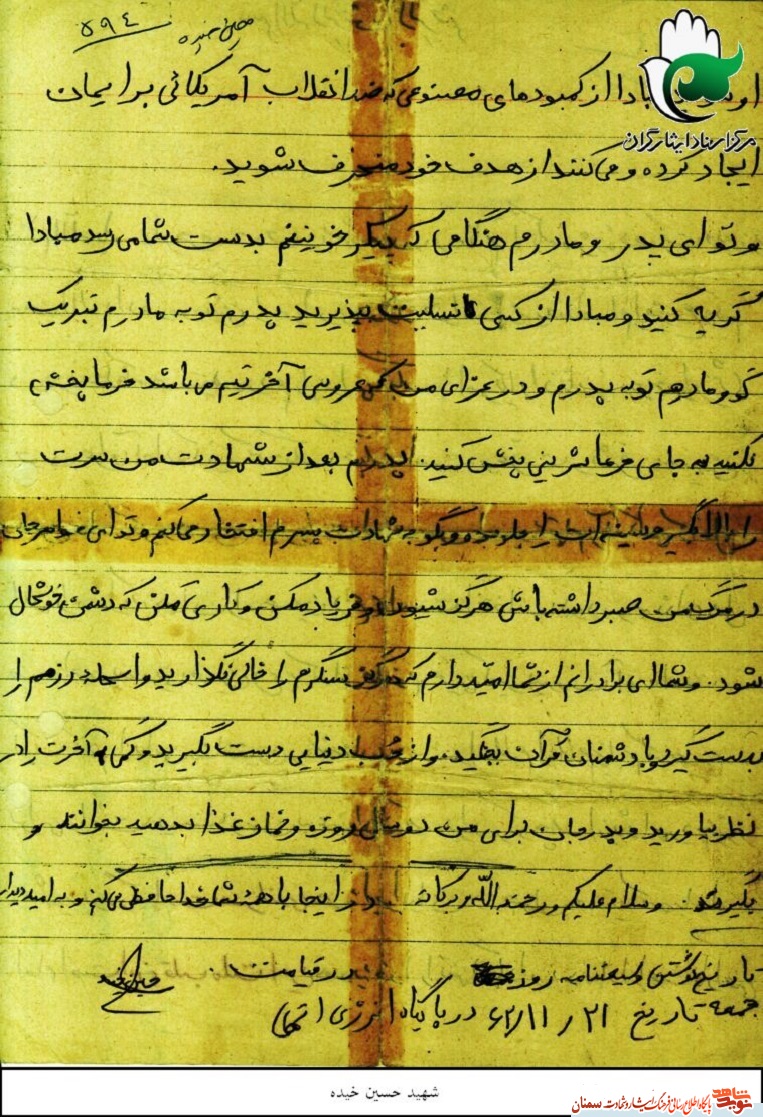 حسین خیده
۵۹۴
مرکز اسناد ایثارگران
مبادا از کمبودهای مصنوعی که ضد انقلاب آمریکائی برایمان
ایجاد کرده و می‌کنند از هدف خود منحرف شوید.
و تو ای پدر و مادرم هنگامی که پیکر خونینم بدست شما می رسد مبادا
گریه کنید و مبادا از کسی تسلیت بپذیرید پدرم تو به مادرم تبریک
گو و مادرم تو به پدرم و در عزای من که عروسی آخرتیم می باشد خرما پخش
نکنید به جای خرما شیرینی پخش کنید. پدرم بعد از شهادت من سرت
را بالا بگیر و سینه‌ات را جلو بده و بگو به شهادت پسرم افتخار می‌کنم و تو ای خواهر جان
در مرگ من صبر داشته باش هرگز شیون و فریاد مکن و کاری مکن که دشمن خوشحال
شود. و شما ای برادرانم از شما امید دارم که هرگز سنگرم را خالی نگذارید و اسلحه رزمم را
بدست گیرید و با دشمنان قرآن بجنگید. و از دنیایی دست بگیرید و کمی به آخرت را در
نظر بیاورید و پدر جان برای من دو سال روزه و نماز غذا بدهید بخوانند و
بگیرند. وسلام علیکم و رحمة الله و برکاته از اینجا با همه شما خدا حافظی می‌کنم و به امید دیدار
در قیامت.
تاریخ نوشتن وصیتنامه روز
جمعه تاریخ ۶۲/۱۱/۲۱ در پایگاه انرژی اتمی
شهید حسین خیده
نوید شاهد
پایگاه اطلاع رسانی فرهنگ ایثار و شهادت سمنان